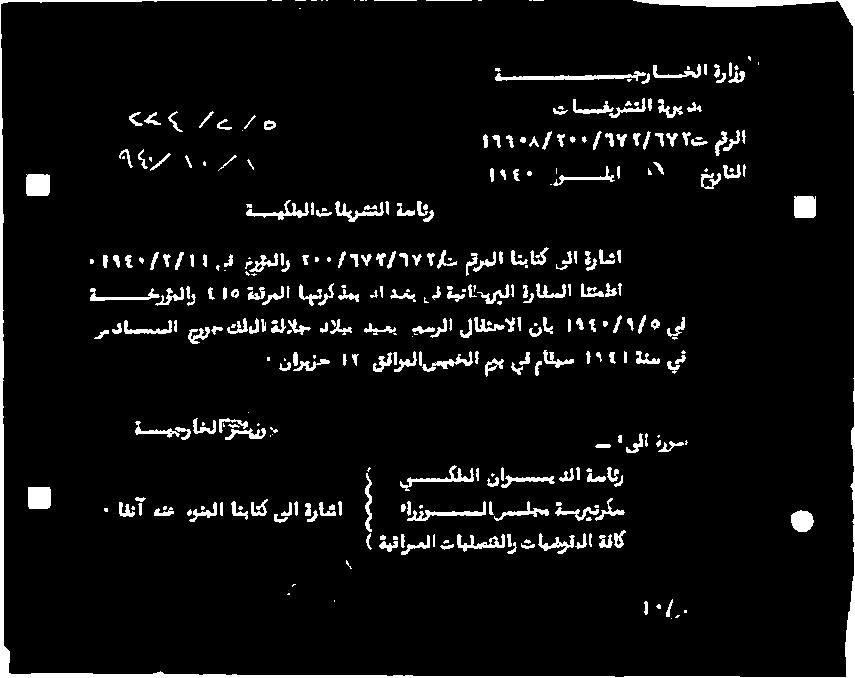 وزارة الخـــارجيـــــــة
مديرية التشريفـــات
الرقم ت/٦٧٢/٦٧٢/٢٠٠/١٦٦٠٨
التاريخ ايلـــول ١٩٤٠
٥/ ٢/ ٢٢٤
١/ ١٠ /٩٤٠
رئاسة التشريفات الملكيـــة
اشارة الى كتابنا المرقم ت/٦٧٢/٦٧٢/٢٠٠ والمؤرخ في ١٩٤٠/٢/١١ ٠
اعلمتنا السفارة البريطانية في بغداد بمذكرتها المرقمة ٤١٥ والمؤرخـــــة
في ١٩٤٠/٩/٥ بان الاحتفال الرسمي بعيد ميلاد جلالة الملك جورج الســـادس
في سنة ١٩٤١ سيقام في يوم الخميس الموافق ١٢ حزيران ٠
الخارجيـــة
صورة الى :ـ
رئاسة الديـــوان الملكـــي
سكرتيريــة مجلس الـــوزراء
كافة المفوضيات والقنصليات العراقية
اشارة الى كتابنا المنوه عنه آنفا ٠